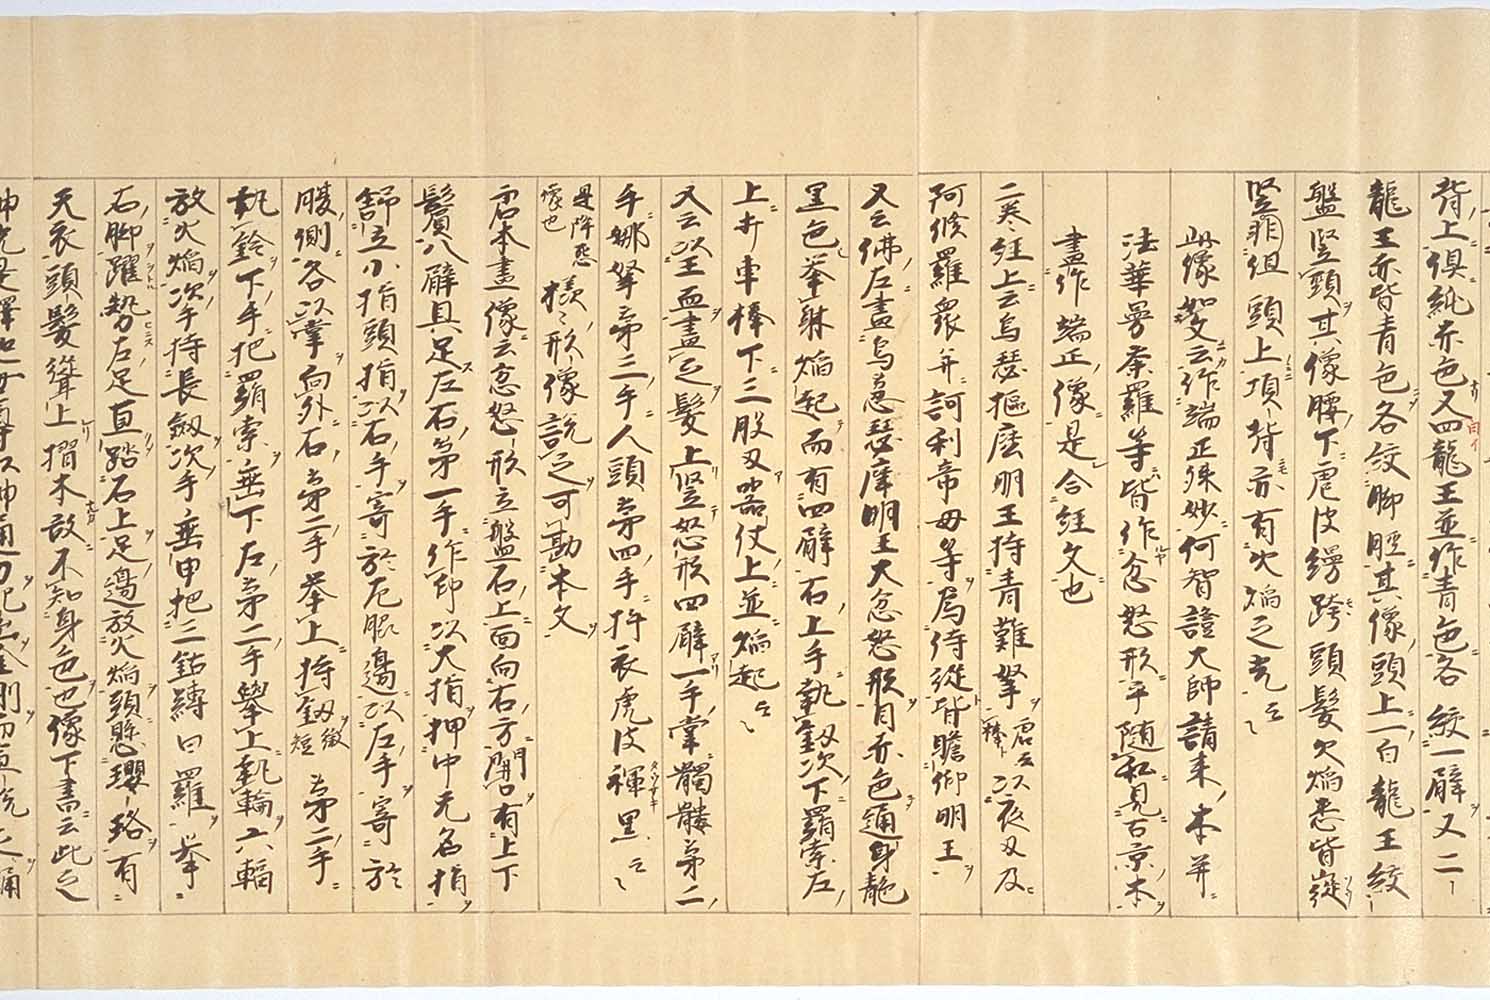 背上倶純赤色又四龍王並作青色各絞一臂又二
龍王亦皆青色各絞脚脛其像頭上一白龍王絞
盤竪頭其像腰下虎皮縵跨頭髪火焔悉皆
竪 俎頭上項背亦有火焔之光云々
此像 文云作端正殊妙何智證大師請来本并
法華曼荼羅等皆作忿怒形乎随私見古京本
畫作端正像是合経文也
二巻経上云烏瑟樞麼明王持青難拏唐云棒 以夜叉及
阿修羅衆并訶利帝母等為侍従皆瞻仰明王
又云佛左畫烏蒭瑟摩明王大忿怒形目赤色通身
黒色挙 焔起而有四臂右上手執釼次下羂索左
上弁車棒下三股叉器仗上並焔起云々
又云以王血畫之髪上竪怒形四臂一手掌髑髏第二
手娜拏第三手人頭第四手杵衣虎皮褌黒云々
是降怨像也 様々形像説之可勘本文
唐本畫像云忿怒形立盤石上面向右方開口有上下
鬚八臂具足左右第一手作印以大指押中无名指
舒立小指頭指以右手寄於 腋邊以左手寄於
腰側各以掌向外右第二手挙上持釼 短 第二手
執鈴下手把羂索垂下左第二手挙上執輪六輻
放火焔次手持長釼次手垂甲把三鈷縛曰羅挙
右脚躍勢左足直踏石上足邊放火焔頸懸瓔珞有
天衣頭髪聳上摺本故不知身色也像下書云此之